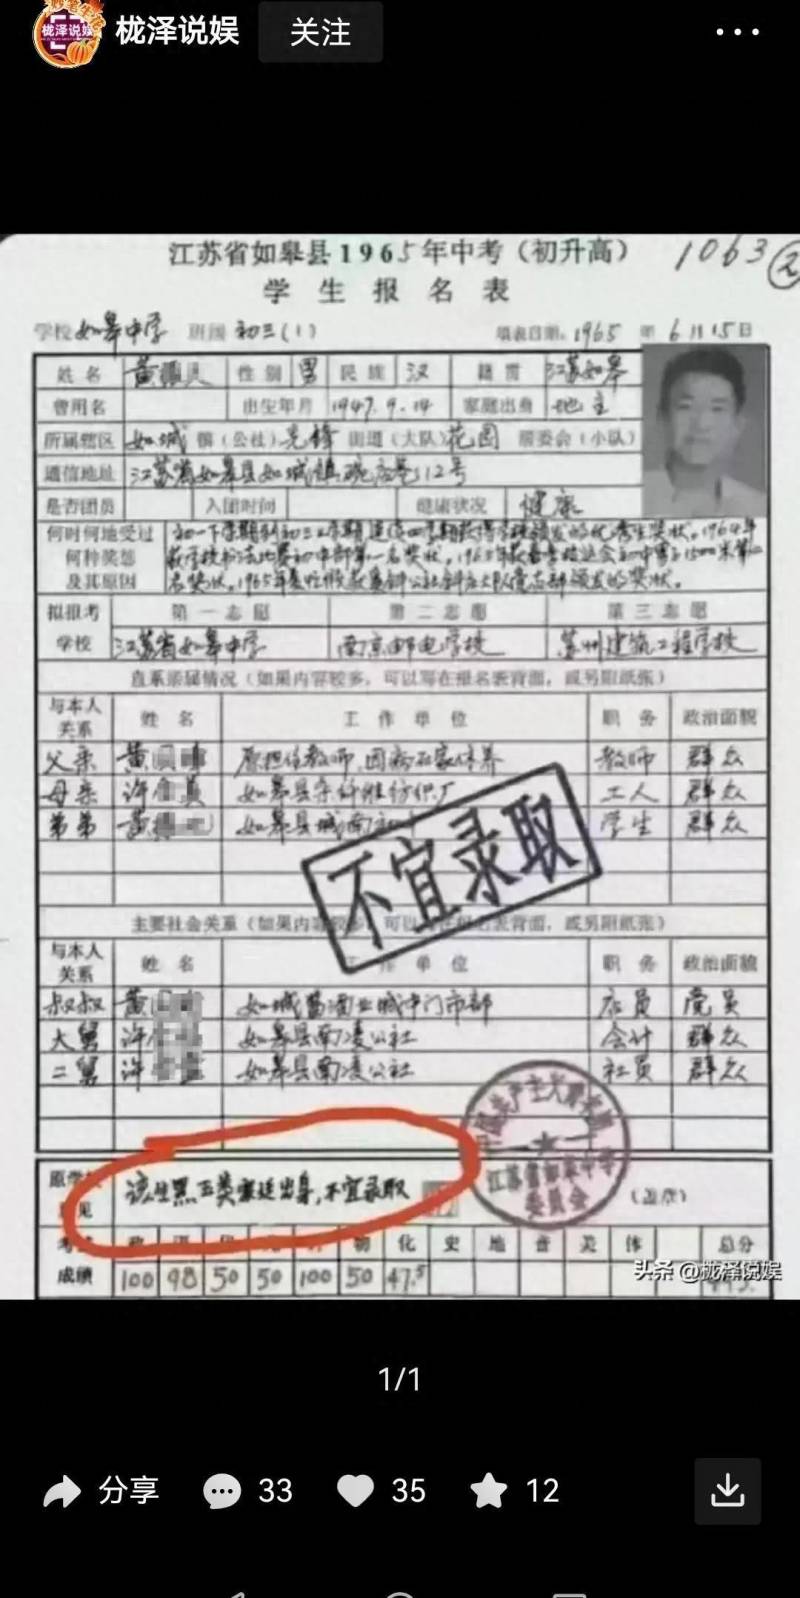 栊泽说娱 关注
江苏省如皋县1965年中考（初升高） 1063 ②
学生报名表
学校 如皋中学 班级 初三(1) 填表日期：1965年6月15日
姓名 黄 性别 男 民族 汉 籍贯 江苏如皋
曾用名 出生年月 1947.9.14 家庭出身 地主
所属辖区 如城 镇（公社）先锋 街道（大队）花园 居委会（小队）
通信地址 江苏省如皋县如城镇 巷112号
是否团员 入团时间 健康状况 健康
何时何地受过 初一下学期到初三上学期连续四学期获得学校颁发的优秀生奖状。1964年
何种奖惩 获学校 比赛初中部第一名奖状。1965年获 校运会初中男子1500米第
及其原因 名奖状。1965年 获 公社 大队党支部颁发的奖状。
拟报考 第一志愿 第二志愿 第三志愿
学校 江苏省如皋中学 南京邮电学校 苏州建筑工程学校
直系亲属情况（如果内容较多，可以写在报名表背面，或另附纸张）
与本人关系 姓名 工作单位 职务 政治面貌
父亲 黄 原担任教师，因病在家休养 教师 群众
母亲 许 如皋县 纺织厂 工人 群众
弟弟 黄 如皋县城南初中 学生 群众
不宜录取
主要社会关系（如果内容较多，可以写在报名表背面，或另附纸张）
与本人关系 姓名 工作单位 职务 政治面貌
叔叔 黄 如城 酒业城中门市部 店员 党员
大舅 许 如皋县南凌公社 会计 群众
二舅 许 如皋县南凌公社 社员 群众
中国共产主义青年团
江苏省如皋中学
委员会
原学校 意见 该生黑五类家庭出身，不宜录取 （盖章）
物 化 史 地 音 美 体 总分
成绩 100 98 50 50 100 50 47.5
头条 @栊泽说娱
1/1
分享 33 35 12